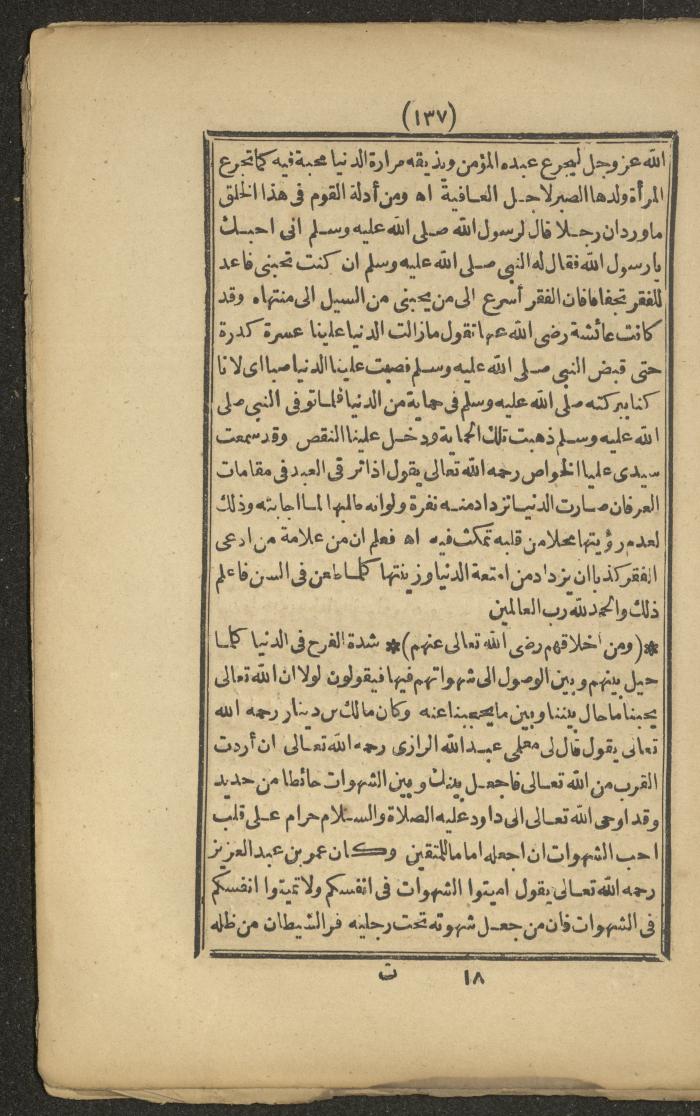 (١٣٧)
الله عز وجل ليجرع عبده المؤمن ويذيقه مرارة الدنيا محبة فيه كما تجرع
المرأة ولدها الصبر لاجل العافية اه ومن أدلة القوم فى هذا الخلق
ما ورد ان رجلا قال لرسول الله صلى الله عليه وسلم انى احبك
يا رسول الله فقال له النبى صلى الله عليه وسلم ان كنت تحبنى فاعد
للفقر تجفافا فان الفقر أسرع الى من يحبنى من السيل الى منتهاه وقد
كانت عائشة رضى الله عنها تقول ما زالت الدنيا علينا عسرة كدرة
حتى قبض النبى صلى الله عليه وسلم فصبت علينا الدنيا صبا اى لانا
كنا ببركته صلى الله عليه وسلم فى حماية من الدنيا فلما توفى النبى صلى
الله عليه وسلم ذهبت تلك الحماية ودخل علينا النقص وقد سمعت
سيدى عليا الخواص رحمه الله تعالى يقول اذا ترقى العبد فى مقامات
العرفان صارت الدنيا تزداد منه نفرة ولو انه طلبها لما اجابته وذلك
لعدم رؤيتها محلا من قلبه تمكث فيه اه فعلم ان من علامة من ادعى
الفقر كذبا ان يزداد من امتعة الدنيا وزينتها كلما طعن فى السن فاعلم
ذلك والحمد لله رب العالمين
*(ومن اخلاقهم رضى الله تعالى عنهم)* شدة الفرح فى الدنيا كلما
حيل بينهم وبين الوصول الى شهواتهم فيها فيقولون لولا ان الله تعالى
يحبنا ما حال بيننا وبين ما يحجبنا عنه وكان مالك بن دينار رحمه الله
تعالى يقول قال لى معلمى عبد الله الرازى رحمه الله تعالى ان أردت
القرب من الله تعالى فاجعل بينك وبين الشهوات حائطا من حديد
وقد اوحى الله تعالى الى داود عليه الصلاة والسلام حرام على قلب
احب الشهوات ان اجعله اماما للمتقين وكان عمر بن عبد العزيز
رحمه الله تعالى يقول اميتوا الشهوات فى انفسكم ولا تميتوا انفسكم
فى الشهوات فان من جعل شهوته تحت رجليه فر الشيطان من ظله
١٨ ت